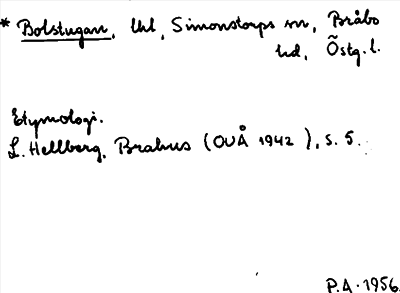 * Bolstugan, Uhl, Simonstorps sn, Bråbo
hd, Östg. l.
Etymologi.
L. Hellberg, Brahus (OUÅ 1942), s. 5.
P.A. 1956.